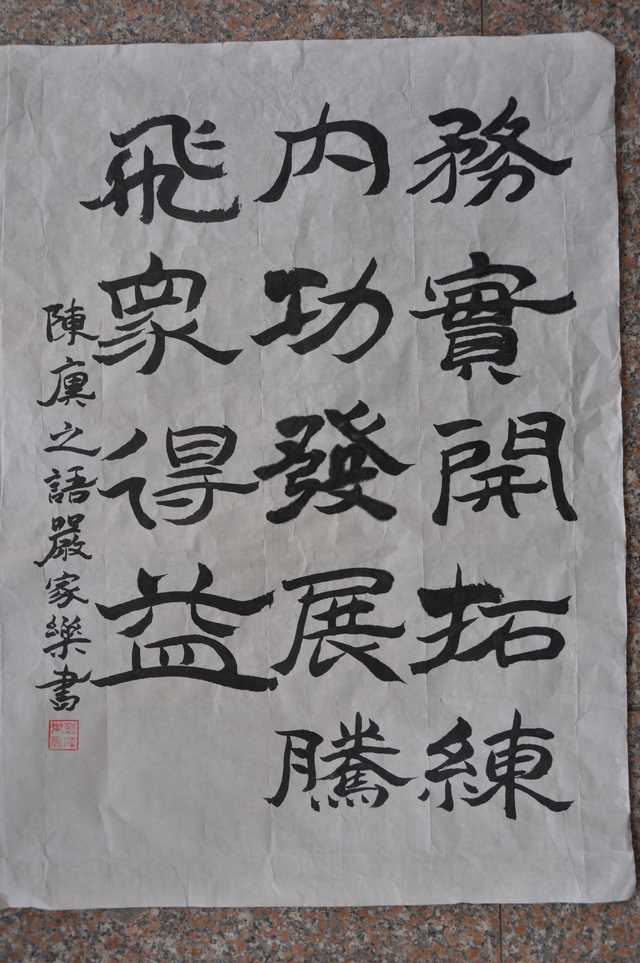 務實開拓練
內功發展騰
飛眾得益
陳虞之語嚴家樂書